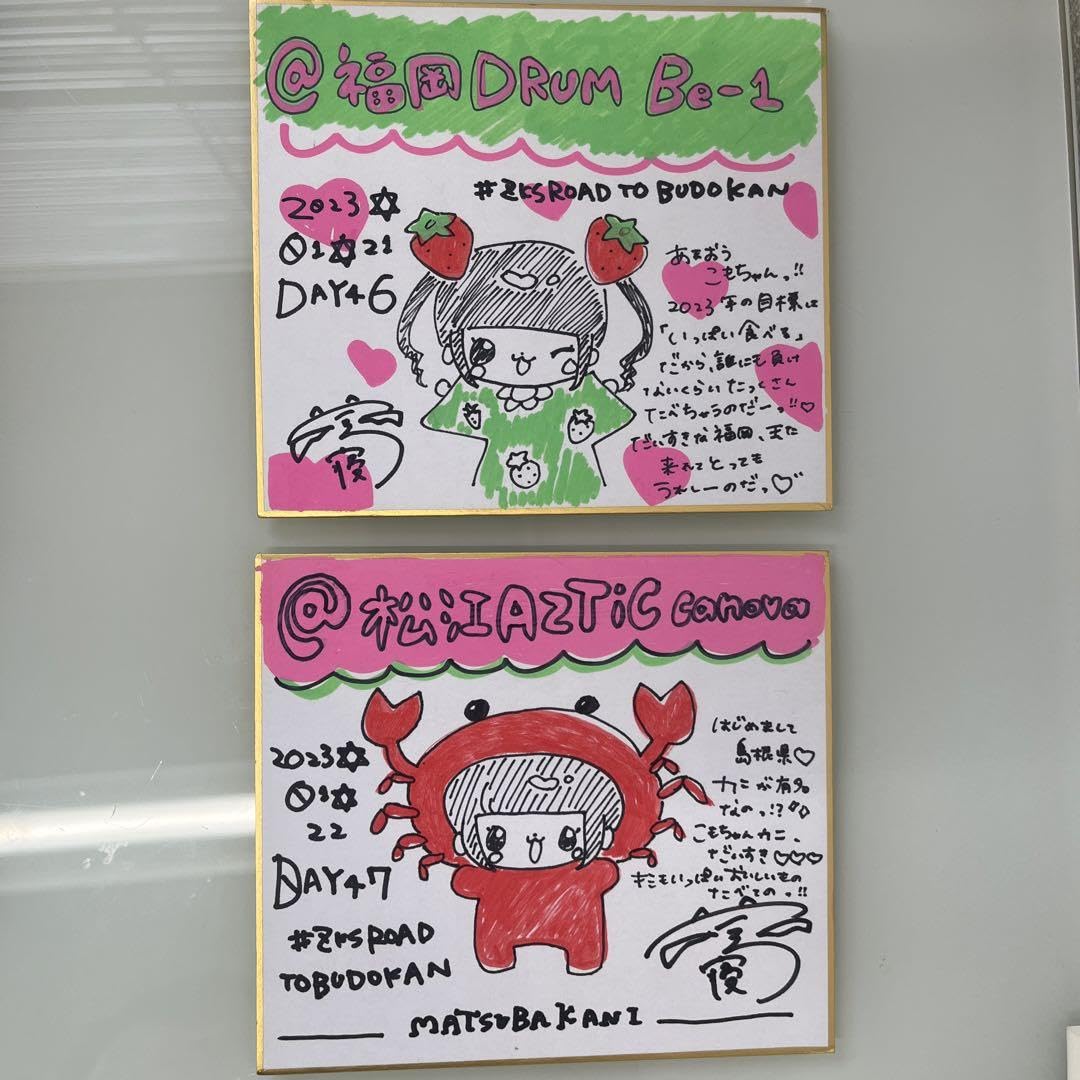 @福岡DRUM Be-1
#ZKSROAD TO BUDOKAN
2023✡
01✡21
DAY46
あまおう
こもちゃんっ!!
2023年の目標は
「いっぱい食べる」
だから、誰にも負け
ないくらいたっくさん
たべちゃうのだーっ!!♡
だいすきな福岡、また
来れてとっても
うれしーのだっ♡
@松江AZTiC canova
2023✡
01✡
22
DAY47
#ZKSROAD
TOBUDOKAN
はじめまして
島根県♡
カニが有名
なのっ!?
こもちゃんカニ、
だいすき♡♡♡
いっぱいおいしいもの
たべてのっ!!
MATSUBAKANI